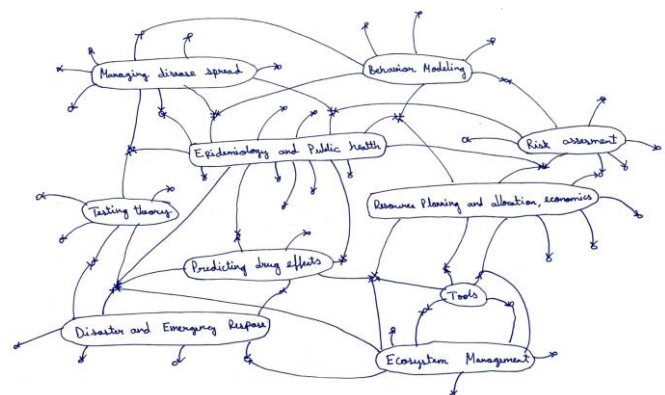 Managing disease spread
Behavior Modeling
Epidemiology and Public health
Risk assesment
Testing theory
Resources Planning and allocation, economics
Predicting drug effects
Tools
Disaster and Emergency Respose
Ecosystem Management